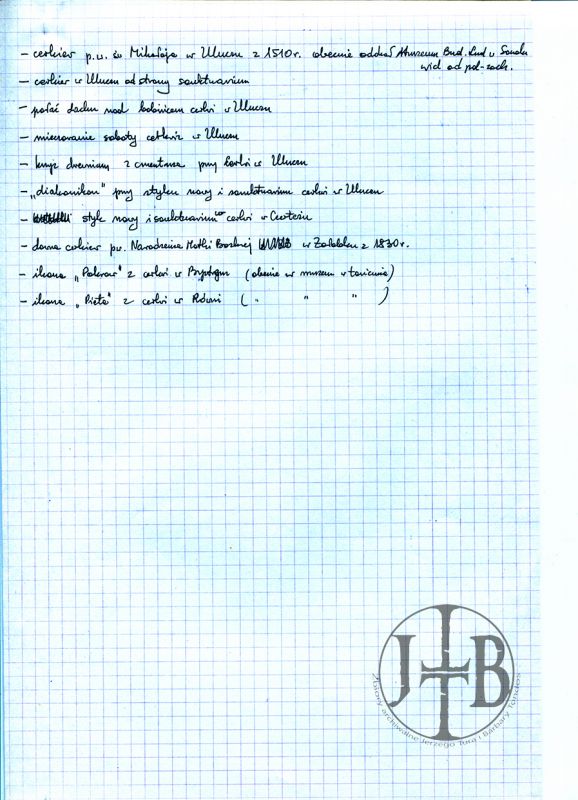 - cerkiew p.w. św Mikołaja w Uluczu z 1510r. obecnie oddział Muzeum Bud. Lud w Sanoku
wid od pd-zach.
- cerkiew w Uluczu od strony sanktuarium
- połać dachu nad babińcem cerkvi w Uluczu
- mocowanie soboty cerkwi w Uluczu
- krzyż drewniany z cmentarza przy cerkvi w Uluczu
- „diakonikon" przy styku nawy i sanktuarium cerkvi w Uluczu
- styk nawy i sanktuarium cerkvi w
- dawna cerkiew pw. Narodzenia Matki Boskiej w z 1830r.
- ikona „Pokrow" z cerkvi w (obecnie w muzeum w Łańcucie)
- ikona „Pieta" z cerkvi w Równi ( " " " )
J B
Zbiory archiwalne Jerzego Tura i Barbary Tondos